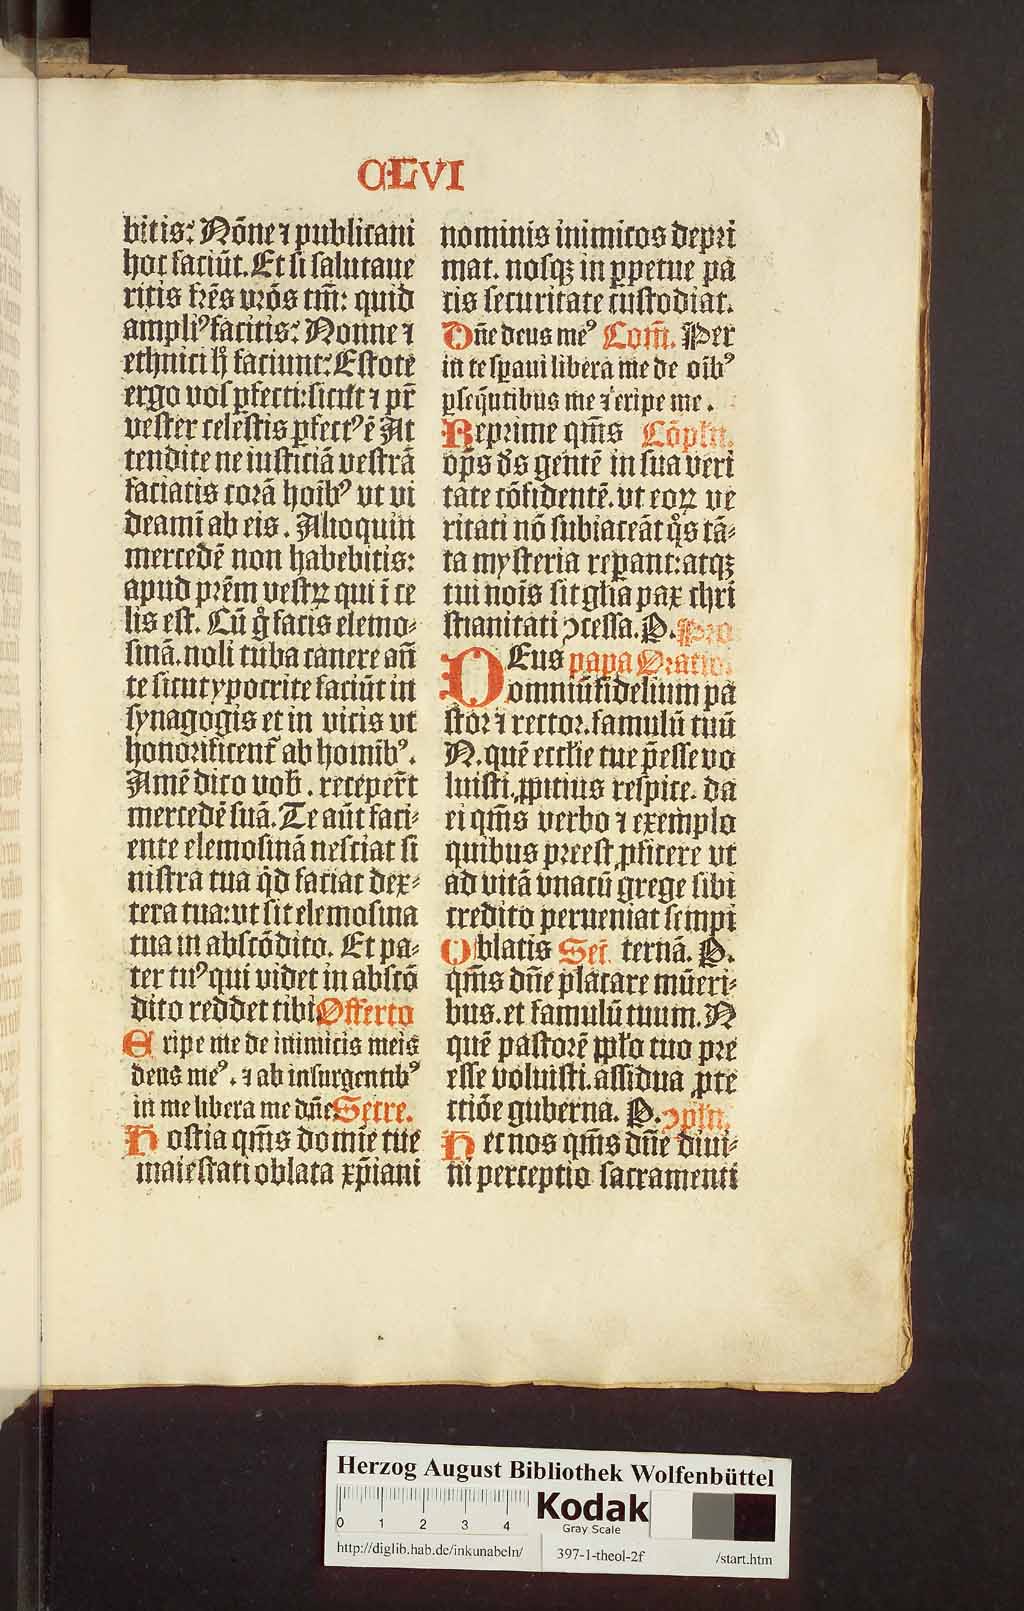 CLVI
bitis: Nōne ⁊ publicani
hoc faciūt. Et si salutaue
ritis fr̄es vr̄os tm̄: quid
ampliꝰ facitis: Nonne ⁊
ethnici h̄ faciunt: Estote
ergo vos ꝑfecti: sicut ⁊ pr̄
vester celestis ꝑfectꝰ ē At
tendite ne iusticiā vestrā
faciatis corā hoīb̄ꝰ ut vi
deamī ab eis. Alioquin
mercedē non habebitis:
apud pr̄em vestrꝝ qui ī ce
lis est. Cū gͦ facis elemo-
sinā. noli tuba canere an̄
te sicut ypocrite faciūt in
synagogis et in vicis vt
honorificent̄ ab homīb̄ꝰ.
Amē dico vob̄. receper̄t
mercedē suā. Te aūt faci-
ente elemosinā nesciat si
nistra tua qͥd faciat dex-
tera tua: vt sit elemosina
tua in abscōdito. Et pa-
ter tuꝰ qui videt in abscō
dito reddet tibi Offerto
Eripe me de inimicis meis
deus meꝰ. ⁊ ab insurgentib̄ꝰ
in me libera me dn̄e Secre.
Hostia qm̄s domīe tue
maiestati oblata xp̄iani
nominis inimicos depri
mat. nosqꝫ in ꝑpetue pa
cis securitate custodiat.
Dn̄e deus meꝰ Com̄. Per
in te sꝑaui libera me de oīb̄ꝰ
ꝑseq̄utibus me ⁊ eripe me.
Reprime qm̄s Cōpln̄.
op̄s d̄s gentē in sua veri
tate cōfidentē. vt eoꝝ ve
ritati nō subiaceāt qͦs tā-
ta mysteria reꝑant: atqꝫ
tui nōis sit gl̄ia pax chri
stianitati ꝯcessa. P. Pro
DEus papa Oratio.
omniū fidelium pa
stor ⁊ rector. famulū tuū
N. quē eccl̄ie tue p̄esse vo
luisti. ꝓpicius respice. da
ei qm̄s verbo ⁊ exemplo
quibus preest ꝓficere vt
ad vitā vnacū grege sibi
credito perueniat sempi
Oblatis Sec̄. ternā. P.
qm̄s dn̄e placare mūeri-
bus. et famulū tuum. N
quē pastorē pp̄lo tuo pre
esse voluisti. assidua ꝓte
ctiōe guberna. P. ꝯpln̄.
Hec nos qm̄s dn̄e diui-
ni perceptio sacramenti
Herzog August Bibliothek Wolfenbüttel
0 1 2 3 4
Kodak
Gray Scale
http://diglib.hab.de/inkunabeln/ 397-1-theol-2f /start.htm